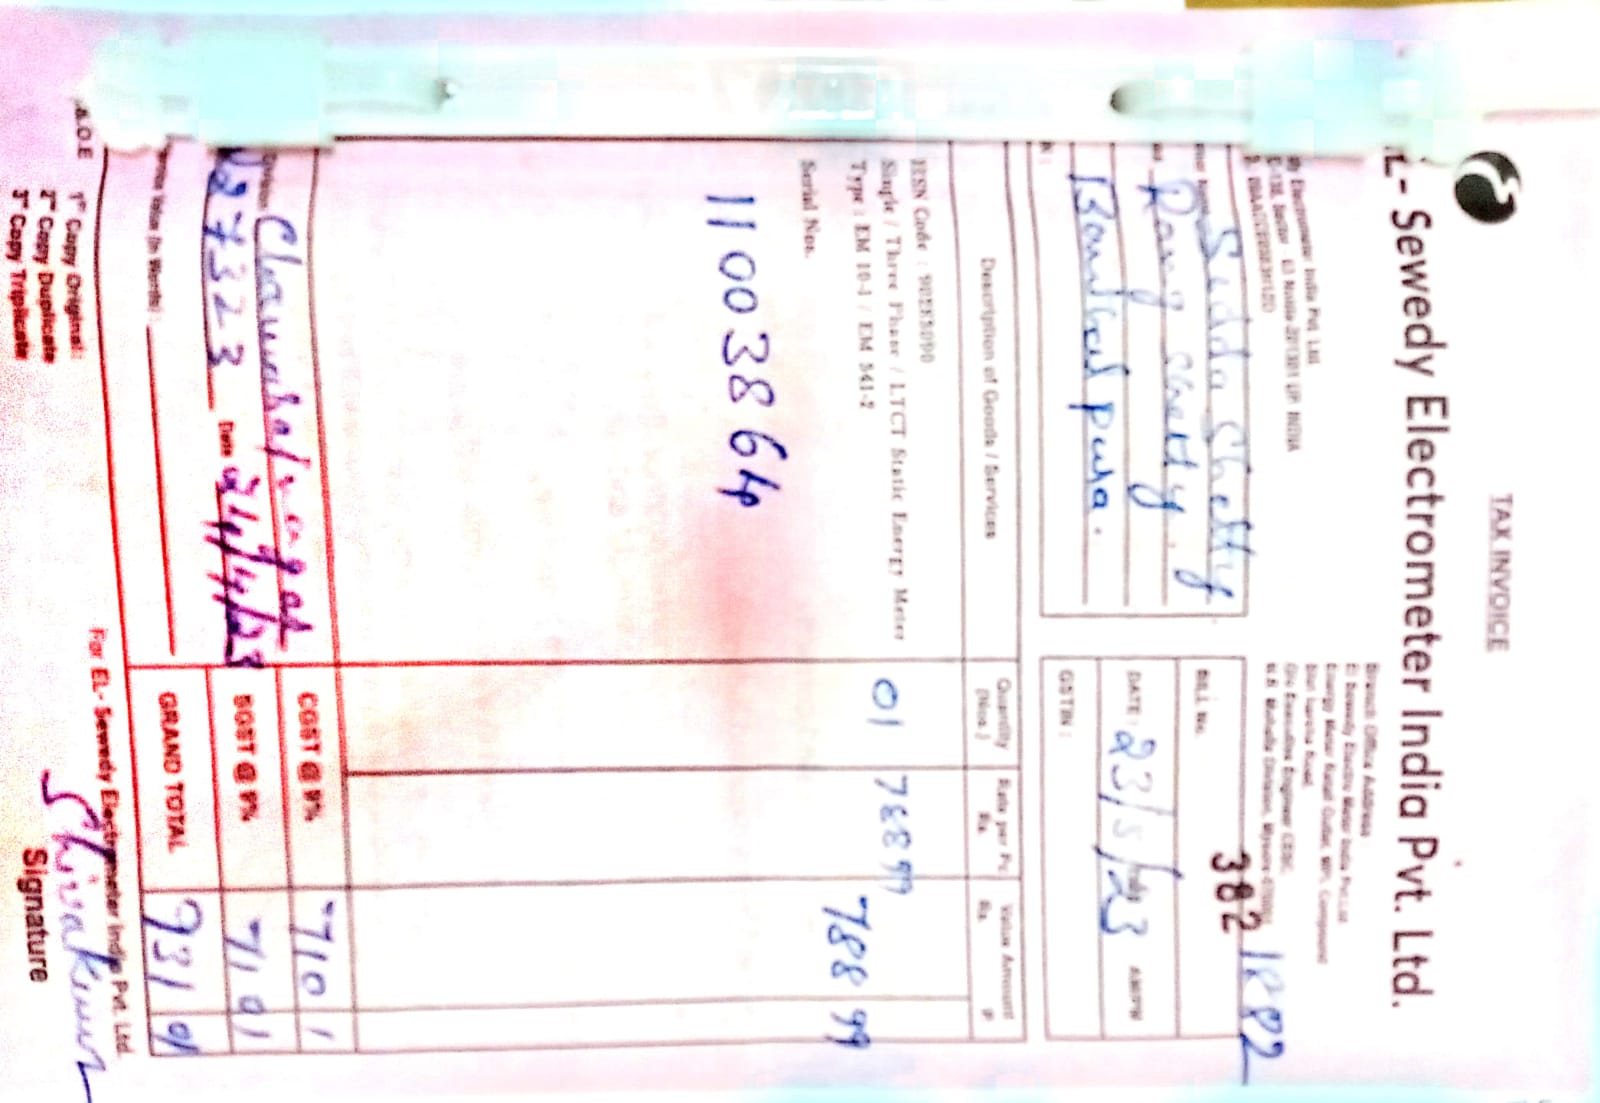 TAX INVOICE
EL- Sewedy Electrometer India Pvt. Ltd.
Electrometer India Pvt. Ltd.
Branch Office Address
El Sewedy Electric Meter India Pvt Ltd
Energy Meter Retail Outlet, MRT, Compound
382 1882
Sidda Shetty
Rama Shetty.
pura.
BILL No.
DATE : 23/5/23 AM/PM
GSTIN :
Description of Goods / Services
Quantity (Nos.)
Rate per Pc Rs.
Value Amount
Rs. P
HSN Code : 90283090
Single / Three Phase / LTCT Static Energy Meter 01 788 99 788 99
Type : EM 10-1 / EM 541-2
Serial Nos.
11003864
Division Chamarajnagar CGST @ 9% 71 01
273323 Date 24/4/23 SGST @ 9% 71 01
Value (in Words) : GRAND TOTAL 931 01
&.O.E
1st Copy Original:
2nd Copy Duplicate
3rd Copy Triplicate
For EL- Sewedy Electrometer India Pvt. Ltd.
Shivakumar
Signature